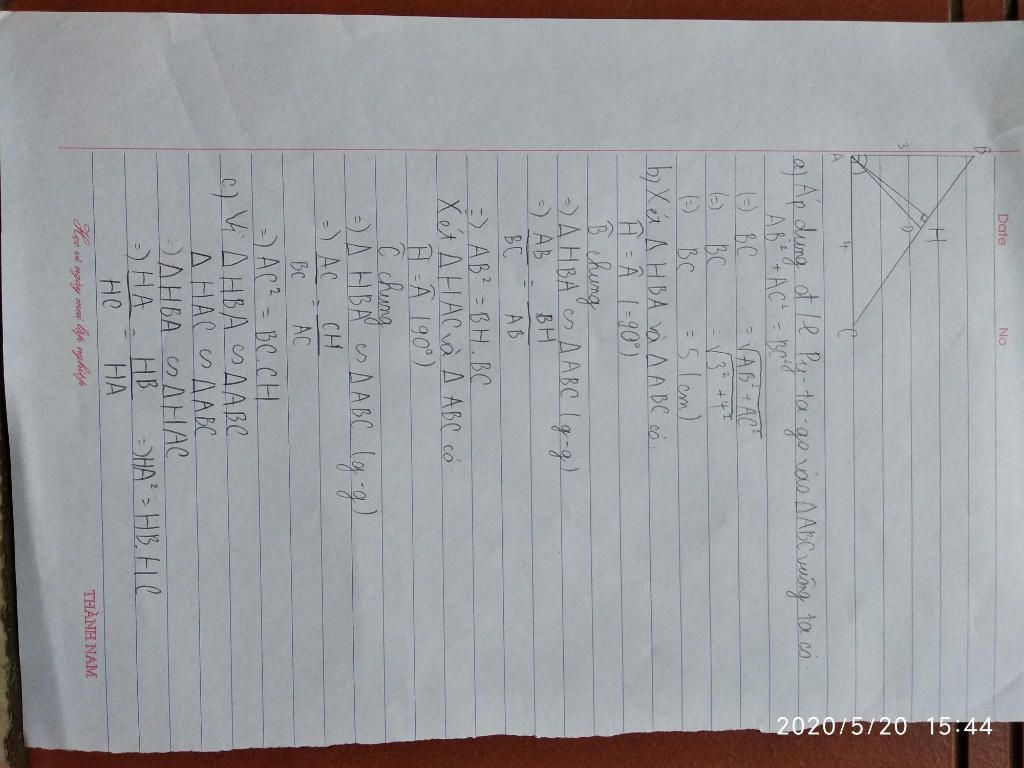 Date
No
B
H
3
D
A
4
C
a) Áp dụng đ/lí Py-ta-go vào ΔABC vuông ta có:
AB² + AC² = BC²
(=) BC = √AB² + AC²
(=) BC = √3² + 4²
(=) BC = 5 (cm)
b) Xét Δ HBA và Δ ABC có:
Ĥ = Â (=90°)
B̂ chung
=) Δ HBA ∽ Δ ABC (g-g)
=) AB/BC = BH/AB
=) AB² = BH.BC
Xét Δ HAC và Δ ABC có:
Ĥ = Â (90°)
Ĉ chung
=) Δ HBA ∽ Δ ABC (g-g)
=) AC/BC = CH/AC
=) AC² = BC.CH
c) Vì Δ HBA ∽ Δ ABC
Δ HAC ∽ Δ ABC
=) Δ HBA ∽ Δ HAC
=) HA/HC = HB/HA =) HA² = HB.HC
Học vì ngày mai lập nghiệp
THÀNH NAM
2020/5/20 15:44